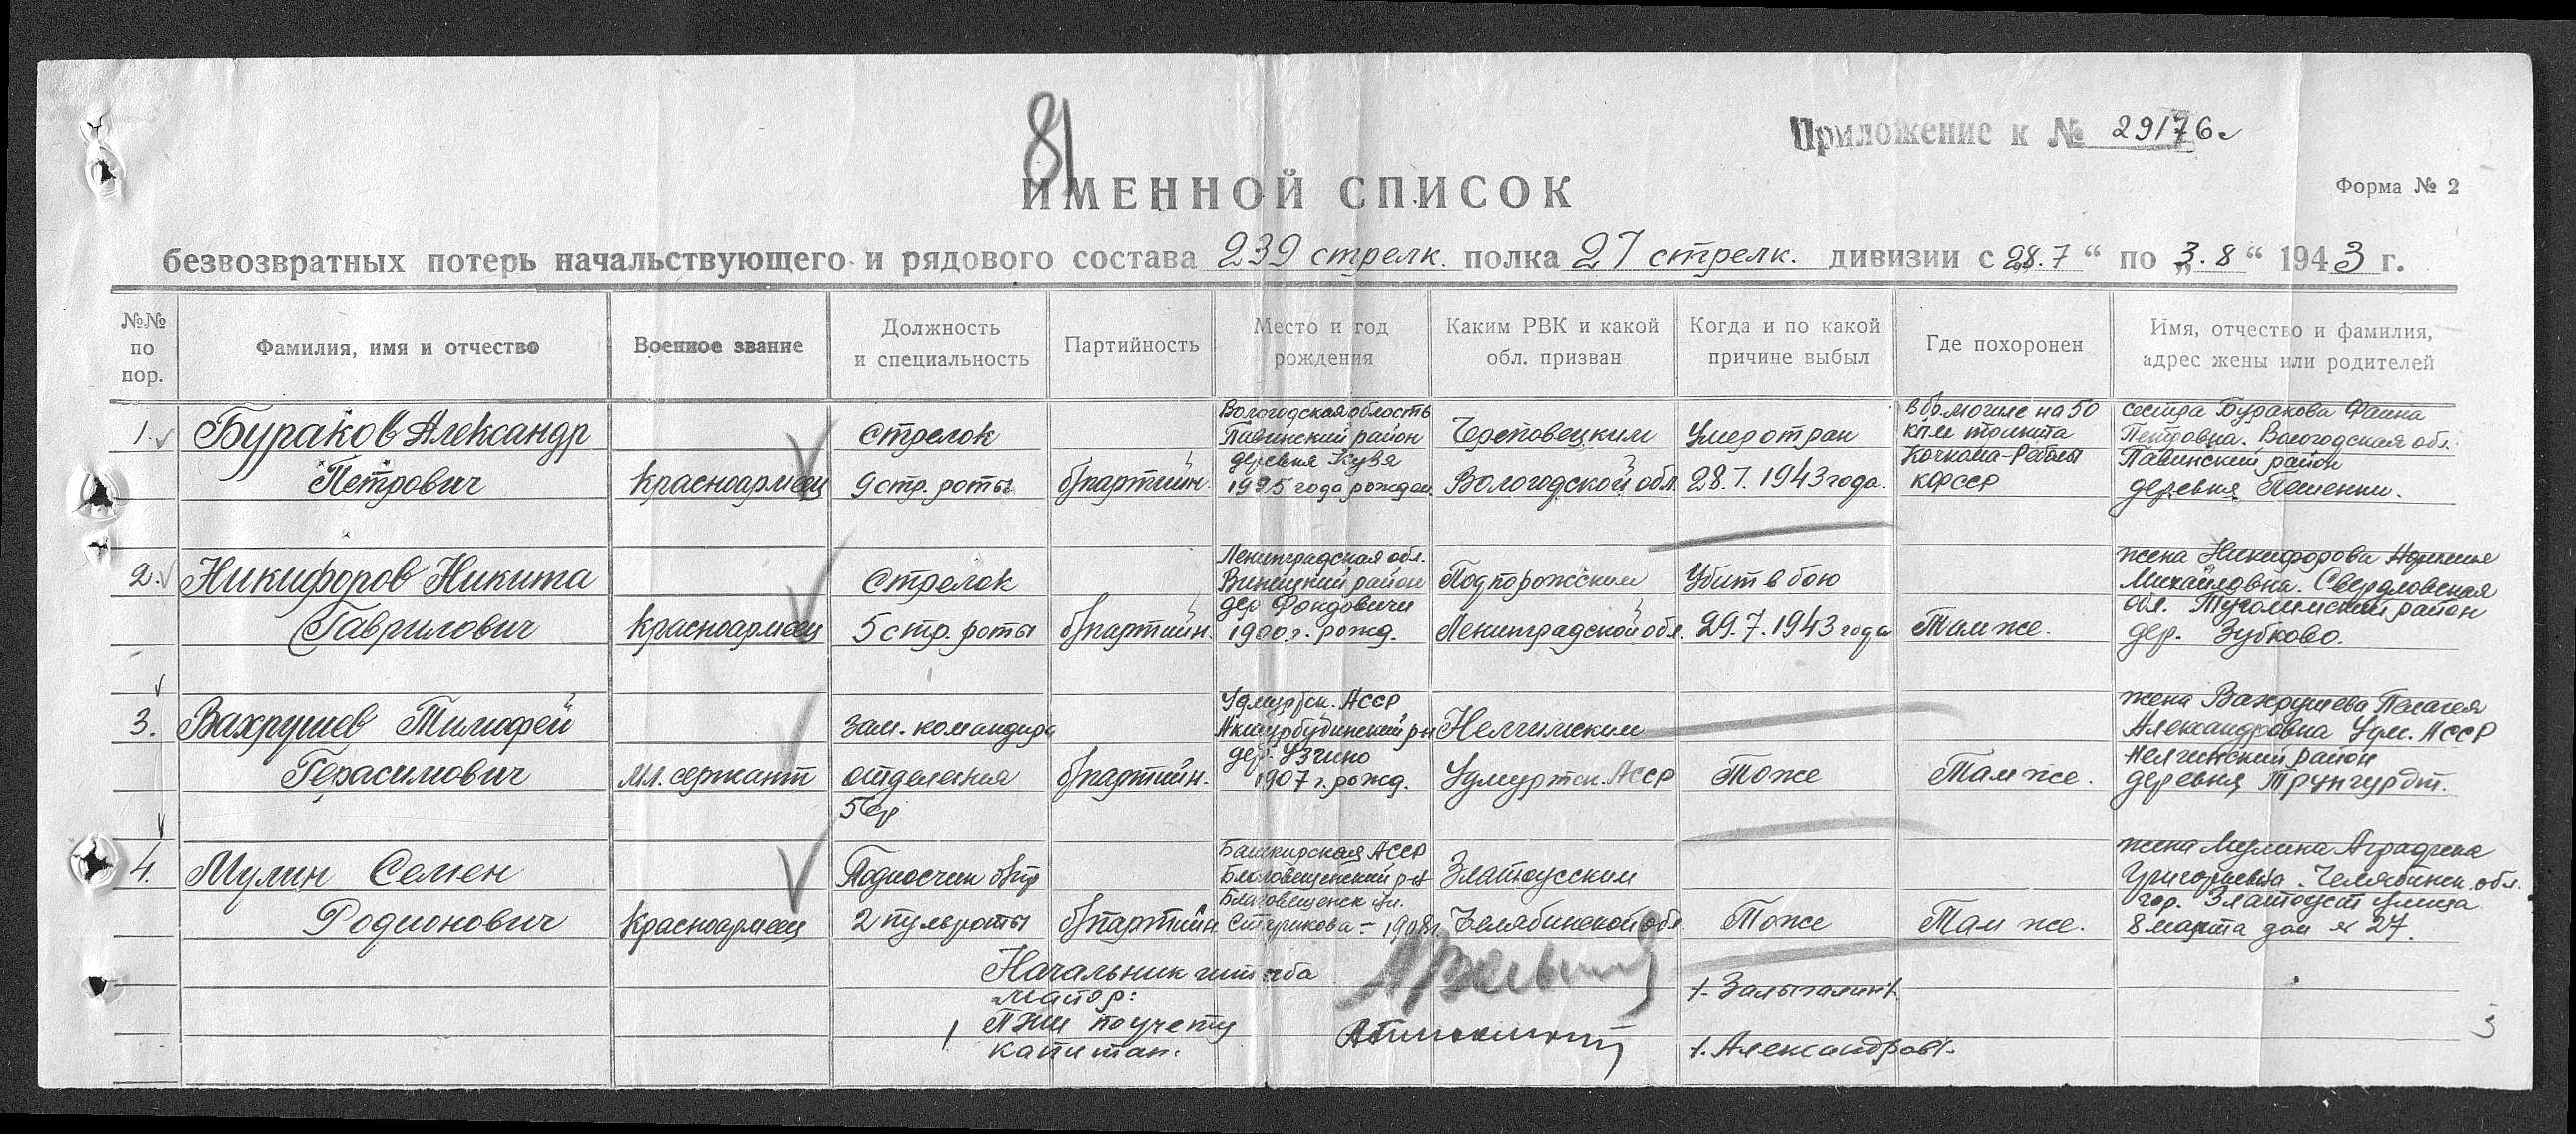 81
Приложение к № 29176с
ИМЕННОЙ СПИСОК
Форма № 2
безвозвратных потерь начальствующего и рядового состава 239 стрелк. полка 27 стрелк. дивизии с 28.7 “ по „3.8“ 1943 г.
№№ по пор.
Фамилия, имя и отчество
Военное звание
Должность и специальность
Партийность
Место и год рождения
Каким РВК и какой обл. призван
Когда и по какой причине выбыл
Где похоронен
Имя, отчество и фамилия, адрес жены или родителей
1.
Бураков Александр
Петрович
Красноармеец
Стрелок
9 стр. роты
б/партийн.
Вологодская область
Павинский район
деревня Кузя
года рожден.
Череповецким
Вологодской обл.
Умер от ран
28.7.1943 года.
в бр. могиле на 50
клм тракта
Кочкома-Реболы
КФССР
сестра Буракова Фаина
Петровна. Вологодская обл.
Павинский район
деревня
2.
Никифоров Никита
Гаврилович
Красноармеец
Стрелок
5 стр. роты
б/партийн.
Ленинградская обл.
Виницкий район
дер.
1900 г. рожд.
Подпорожским
Ленинградской обл.
Убит в бою
29.7.1943 года
Там же.
жена Никифорова
Михайловна. Свердловская
обл. район
дер. Зубково.
3.
Вахрушев Тимофей
Герасимович
мл. сержант
зам. командира
отделения
5 ср
б/партийн.
Удмуртск. АССР
дер. Узгино
1907 г. рожд.
Нелгинским
Удмуртск. АССР
Тоже
Там же.
жена Вахрушева Пелагея
Александровна Удм. АССР
Нелгинский район
деревня
4.
Мулин Семен
Родионович
Красноармеец
Подносчик
2 пульроты
б/партийн.
Башкирская АССР
Благовещенский р-н
Благовещенск ул.
Старикова - 1908 г.
Златоусским
Челябинской обл
Тоже
Там же.
жена Мулина Аграфена
Григорьевна. Челябинск. обл.
гор. Златоуст улица
8 марта дом № 27.
Начальник штаба
майор:
/-Залыгалин/-
ПНШ по учету
капитан:
/-Александров/-